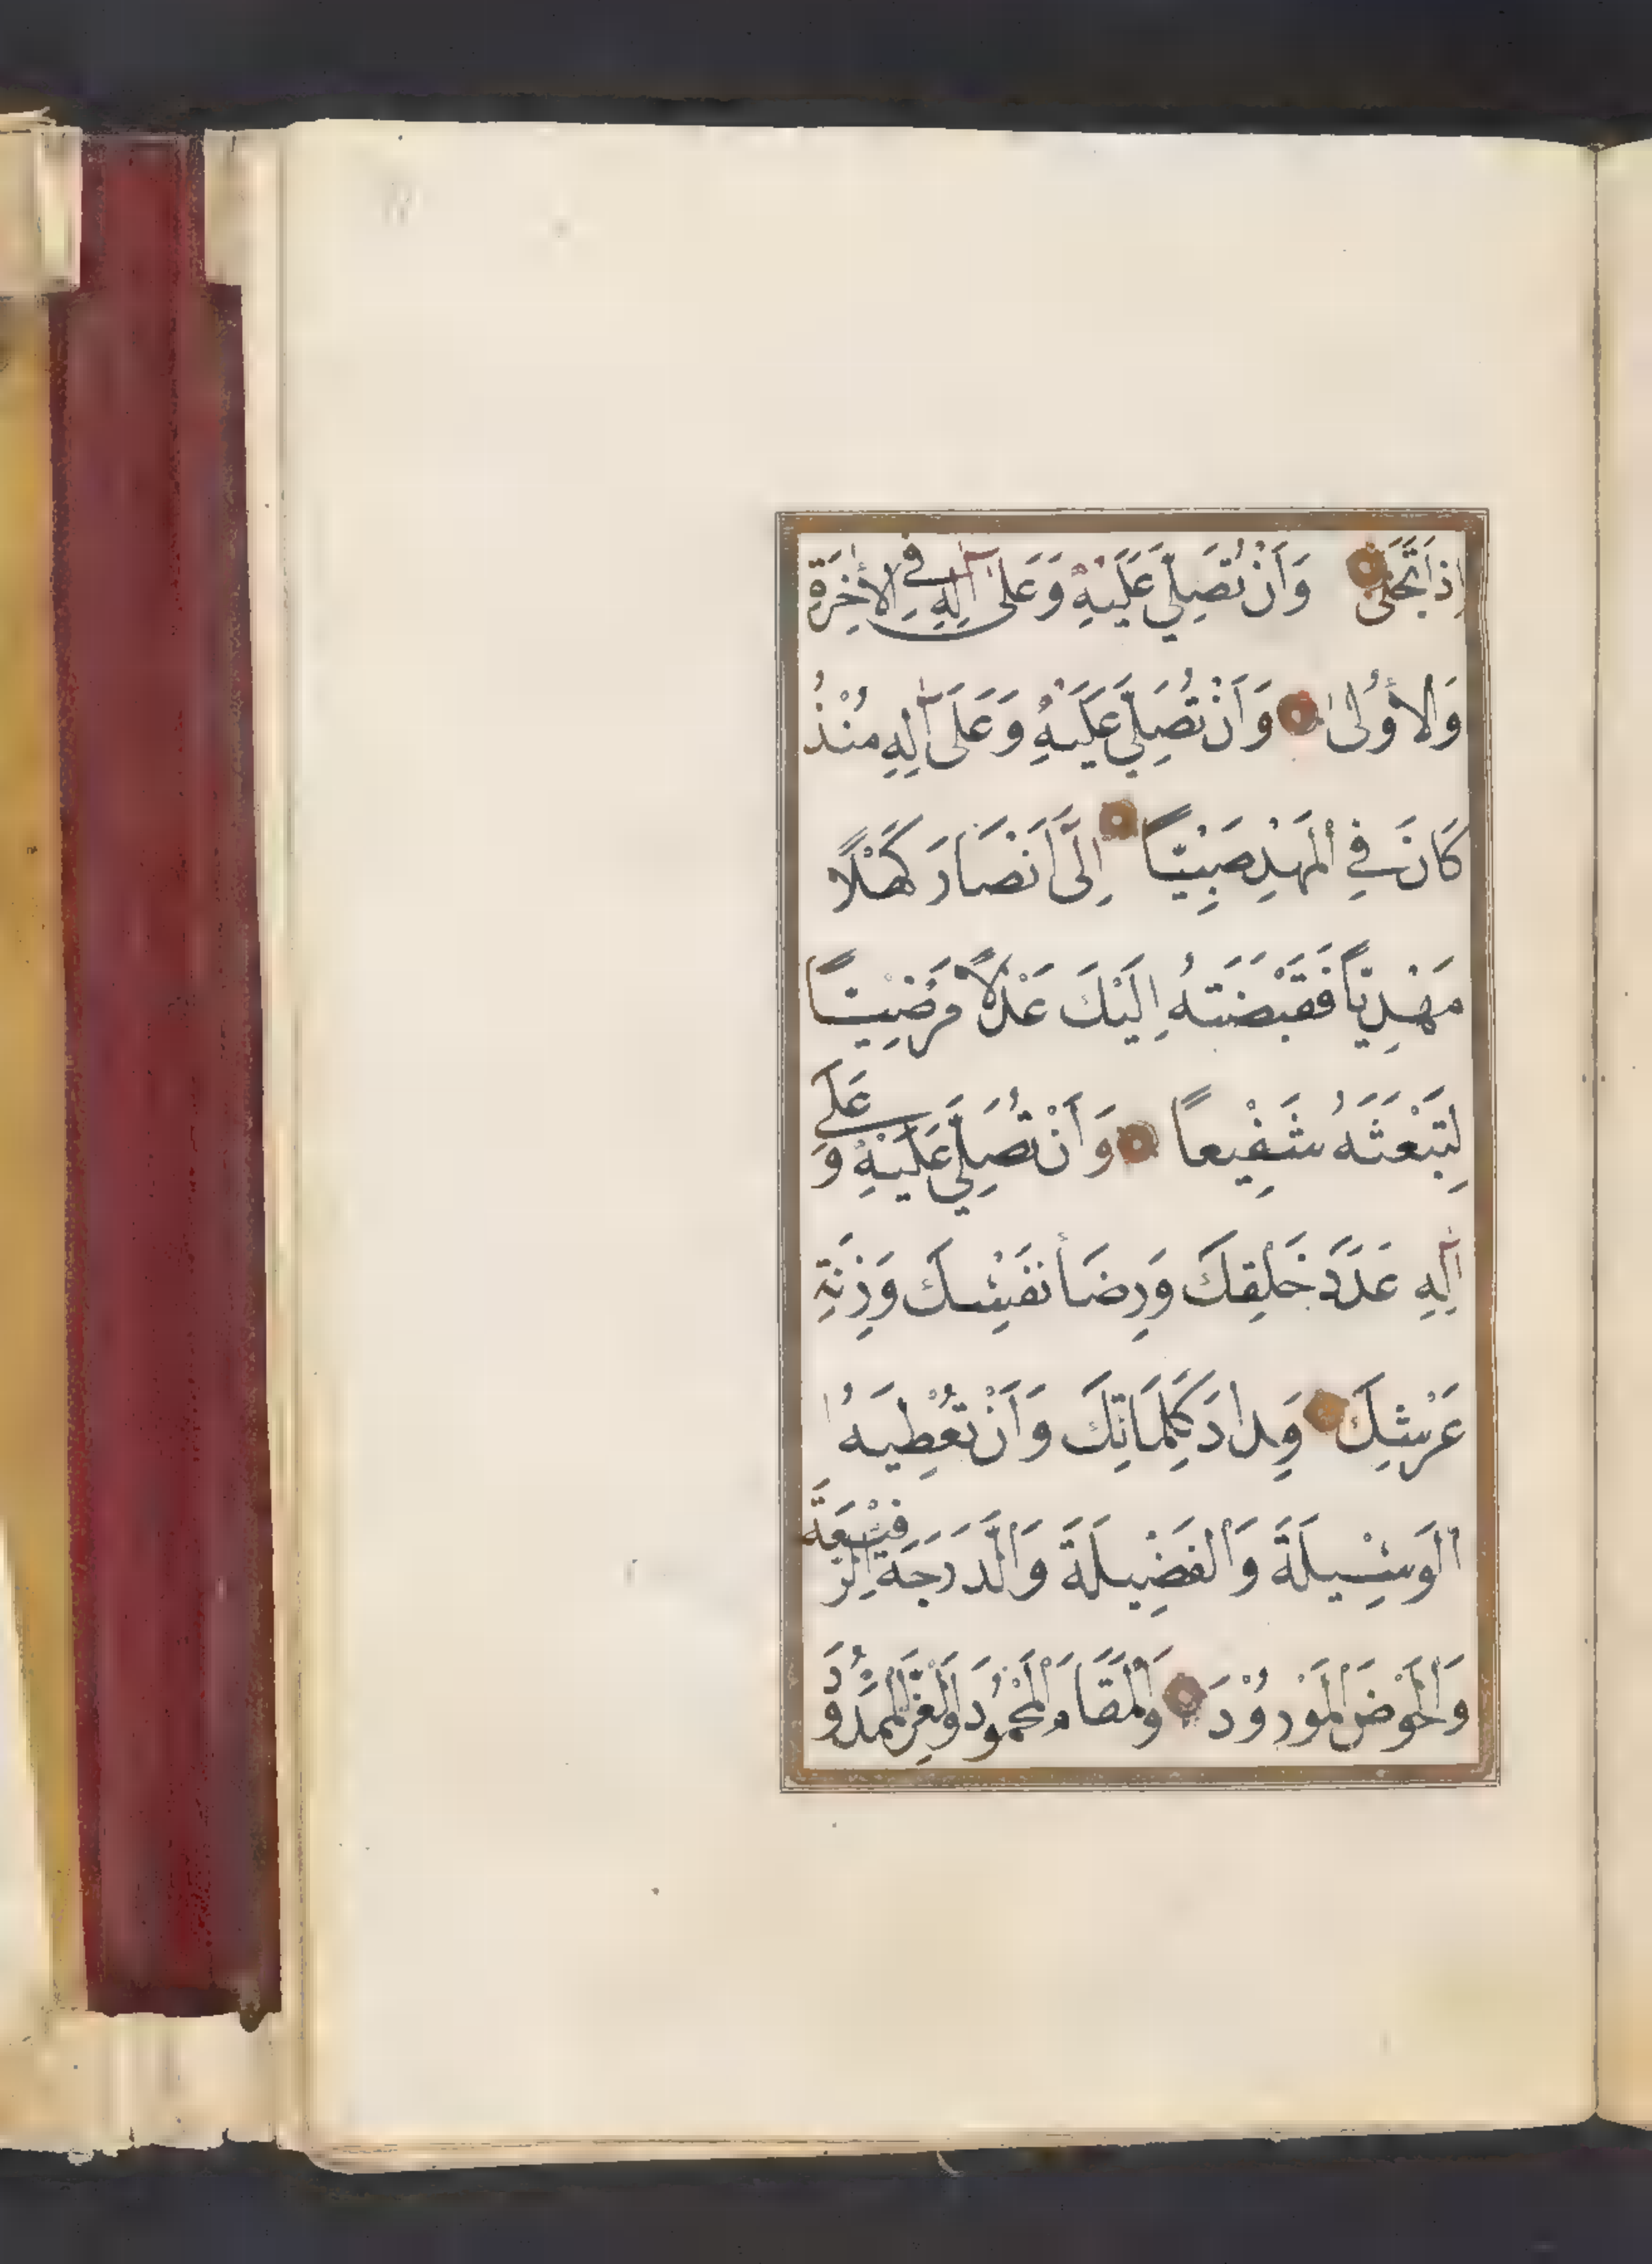 اِذَا تَجَلّٰى وَاَنْ تُصَلِّيَ عَلَيْهِ وَعَلٰى آلِهِ فِي الْاٰخِرَةِ
وَالْأُولٰى وَاَنْ تُصَلِّيَ عَلَيْهِ وَعَلَى آلِهِ مُنْذُ
كَانَ فِي الْمَهْدِ صَبِيًّا اِلَى اَنْ صَارَ كَهْلًا
مَهْدِيًّا فَقَبَضْتَهُ اِلَيْكَ عَدْلًا مَرْضِيًّا
لِتَبْعَثَهُ شَفِيعاً وَاَنْ تُصَلِّيَ عَلَيْهِ وَعَلَى
آلِهِ عَدَدَ خَلْقِكَ وَرِضَا نَفْسِكَ وَزِنَةِ
عَرْشِكَ وَمِدَادَ كَلِمَاتِكَ وَاَنْ تُعْطِيَهُ
الْوَسِيلَةَ وَالْفَضِيلَةَ وَالدَّرَجَةَ الرَّفِيْعَةَ
وَالْحَوْضَ الْمَوْرُوْدَ وَالْمَقَامَ الْمَحْمُودَ وَالْعِزَّ الْمَمْدُودَ